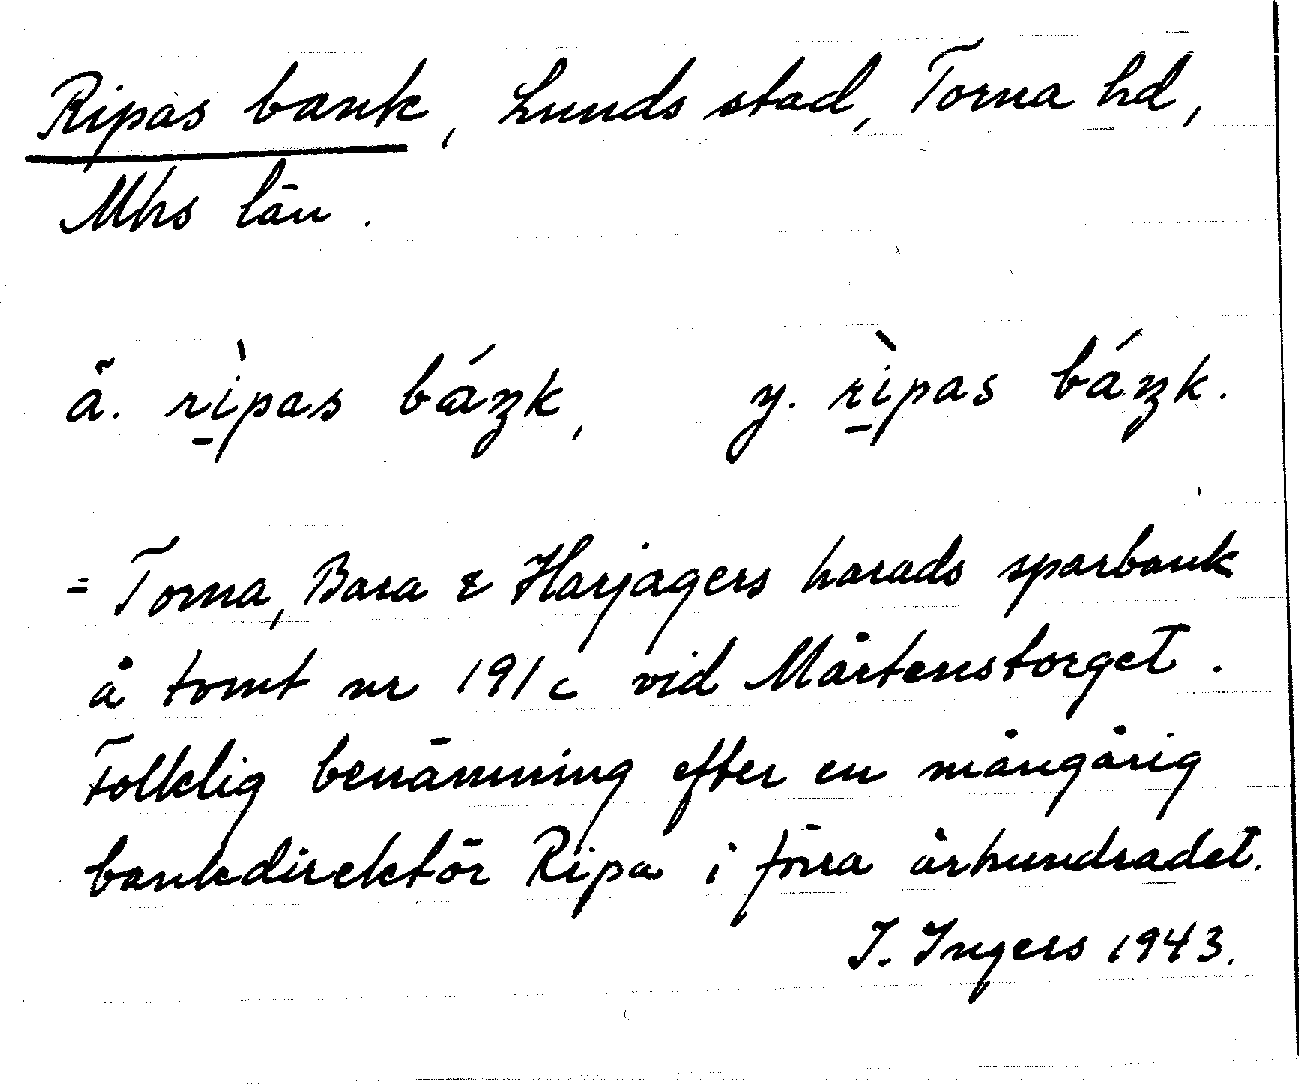 Ripas bank, Lunds stad, Torna hd,
Mhs län.
ä. rìpas báŋk, y. rìpas báŋk.
= Torna, Bara & Harjagers harads sparbank
å tomt nr 191c vid Mårtenstorget.
Folklig benämning efter en mångårig
bankdirektör Ripa i förra århundradet.
I. Ingers 1943.